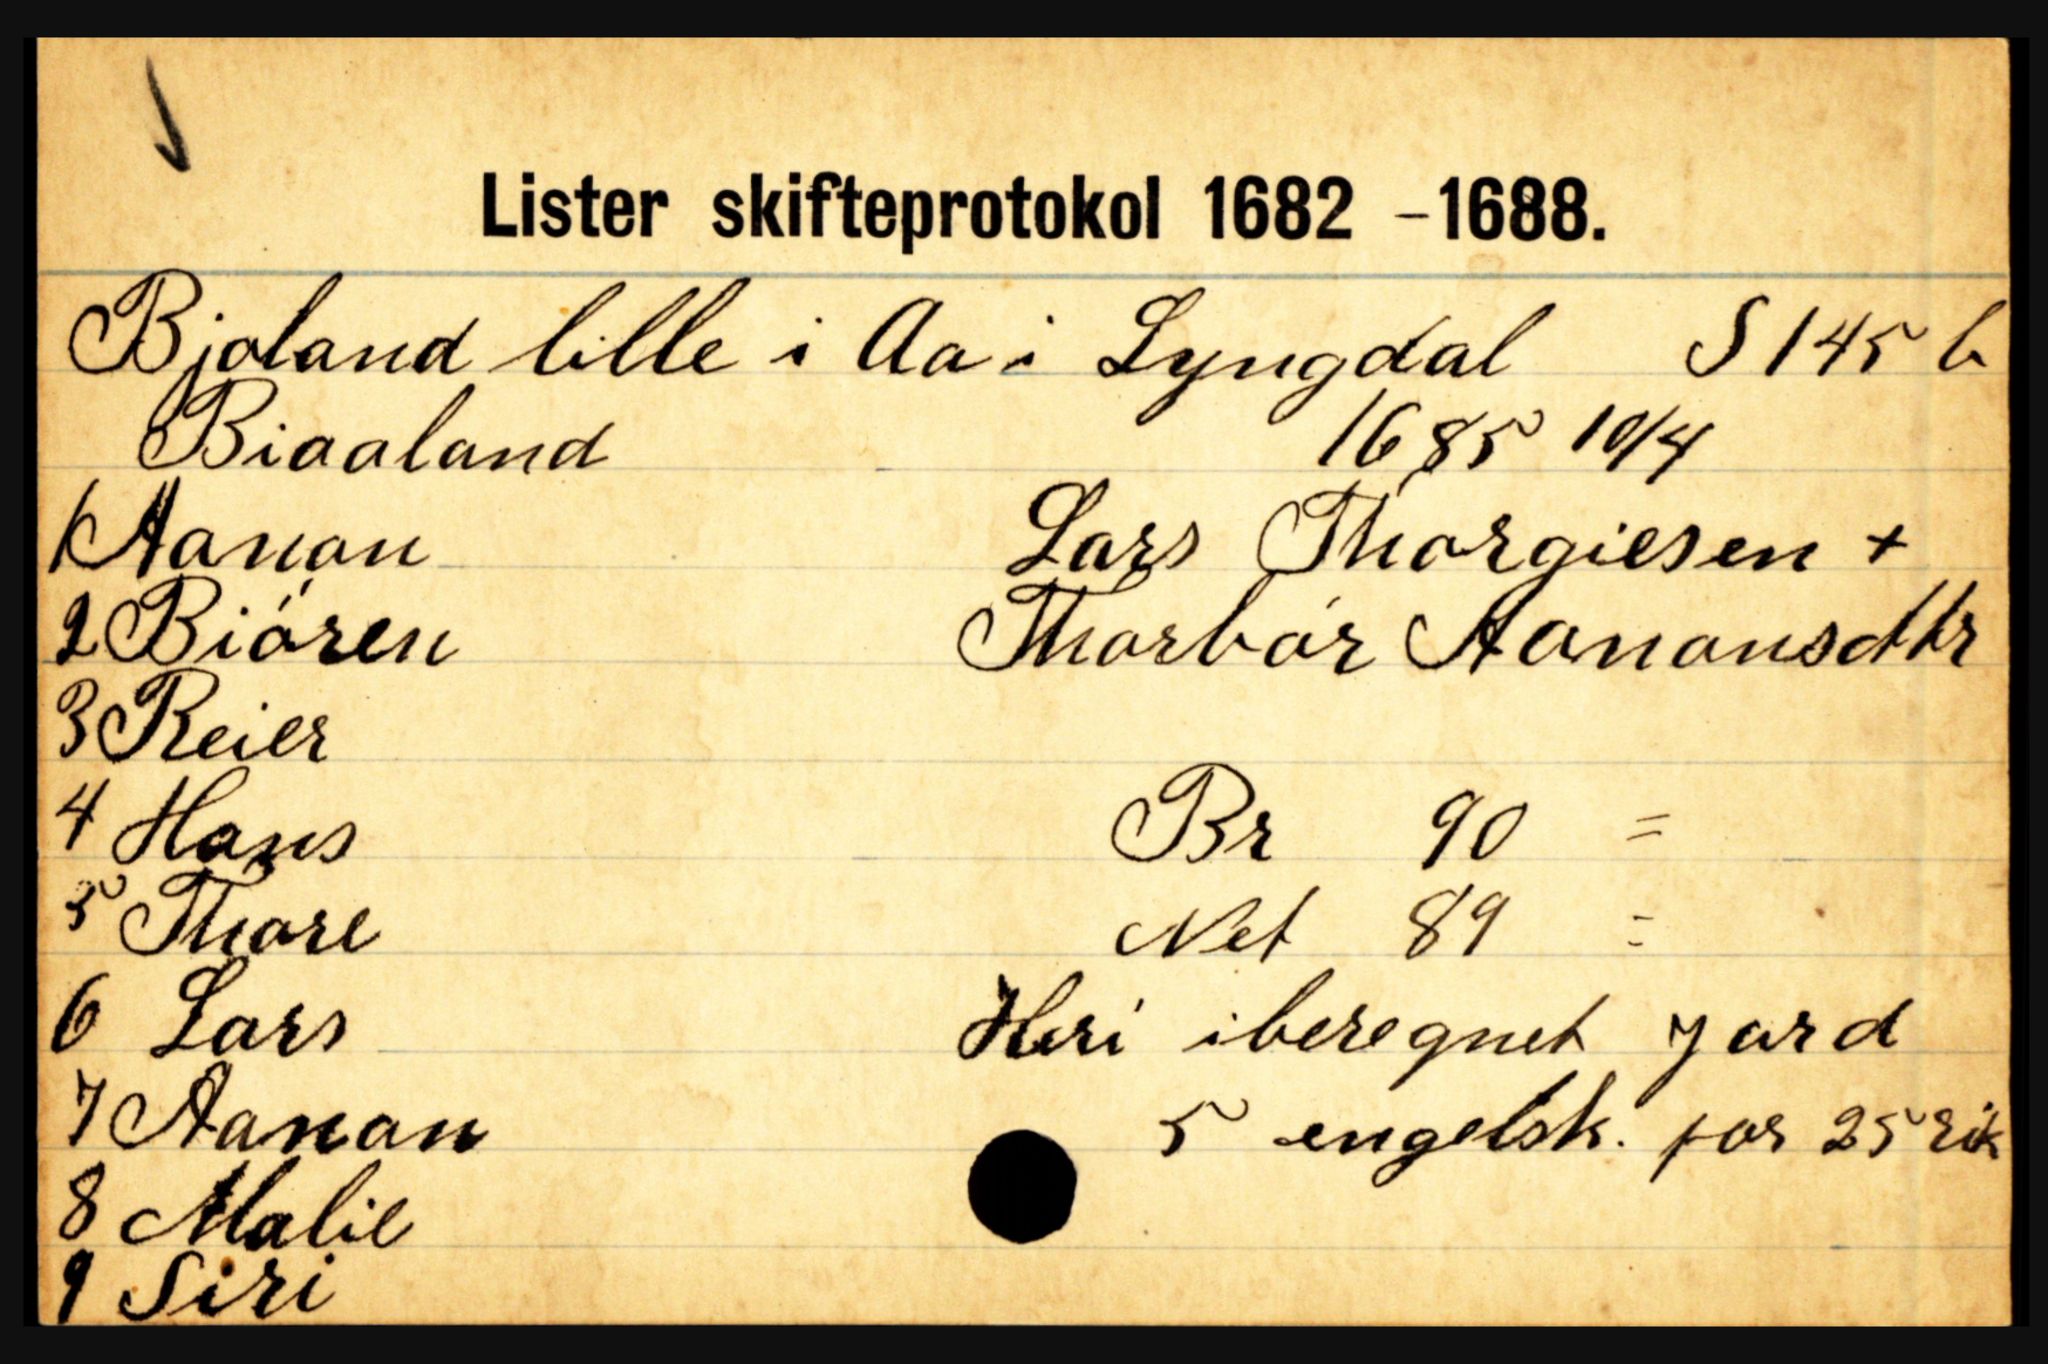 Lister skifteprotokol 1682 - 1688.
Bjoland lille i Aa i Lyngdal S 145 b
Biaaland 1685 10/4
1 Aanon Lars Thorgiesen +
2 Biören Thorbór Aanonsdtr
3 Reier
4 Hans Br 90 =
5 Thore Net 89 =
6 Lars Heri iberegnet jord
7 Aanon 5 engelsk. for 25 rik
8 Malie
9 Siri